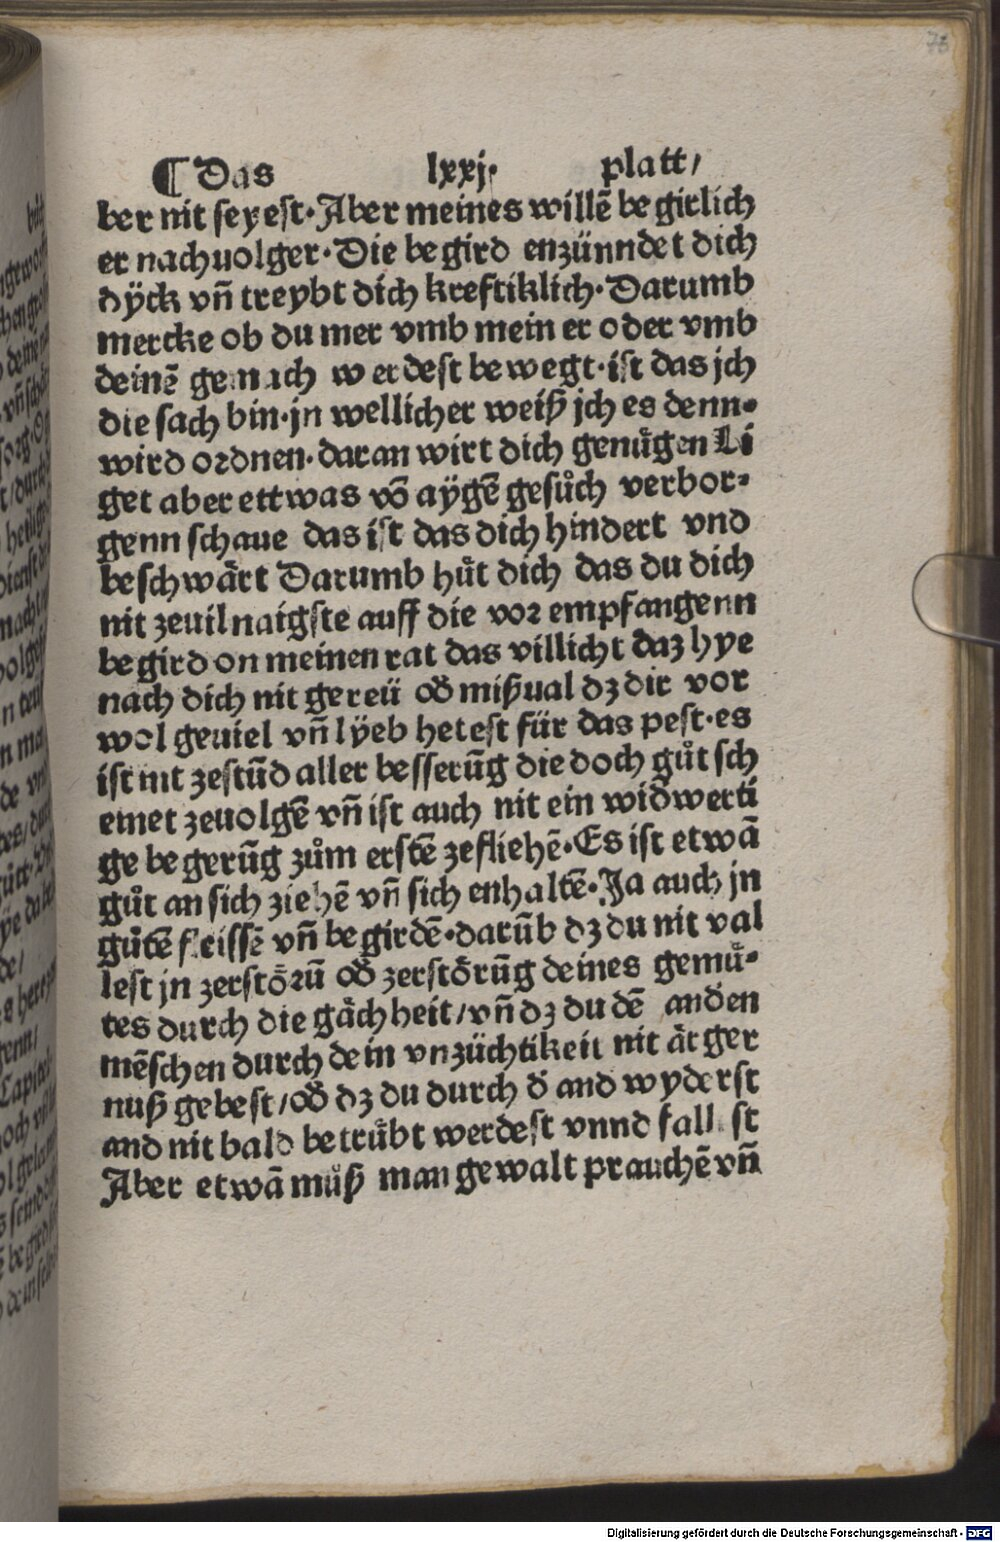 ¶ Das lxxj· platt/
ber nit seyest·Aber meines willē begirlich
er nachuolger·Die begird enzünndet dich
dÿck vn̄ treybt dich kreftiklich·Darumb
mercke ob du mer vmb mein er oder vmb
deinē gemach werdest bewegt·ist das jch
die sach bin·jn wellicher weiß jch es denn⸗
wird ordnen·daran wirt dich genuͤgen Li
get aber ettwas vō aÿgē gesuͦch verbor⸗
genn schaue das ist das dich hindert vnd
beschwaͤrt Darumb huͤt dich das du dich
nit zeuil naigste auff die vor empfangenn
begird on meinen rat das villicht daz hye
nach dich nit gereü od̄ mißual dz dir vor
wol geuiel vn̄ lÿeb hetest für das pest·es
ist nit zestūd aller besserūg die doch guͦt sch
einet zeuolgē vn̄ ist auch nit ein wid̄werti
ge begerūg zuͦm erstē zefliehē·Es ist etwā
guͦt an sich ziehē vn̄ sich enhaltē·Ja auch jn
guͦtē fleissē vn̄ begirdē·darūb dz du nit val
lest jn zerstoͤrū od̄ zerstoͤrūg deines gemuͤ⸗
tes durch die gaͤchheit/vn̄ dz du dē and̄en
mēschen durch dein vnzüchtikeit nit aͤrger
nuß gebest/od̄ dz du durch d̄ and wyderst
and nit bald betruͤbt werdest vnnd fallest
Aber etwā muͦß man gewalt prauchē vn̄
Digitalisierung gefördert durch die Deutsche Forschungsgemeinschaft - DFG